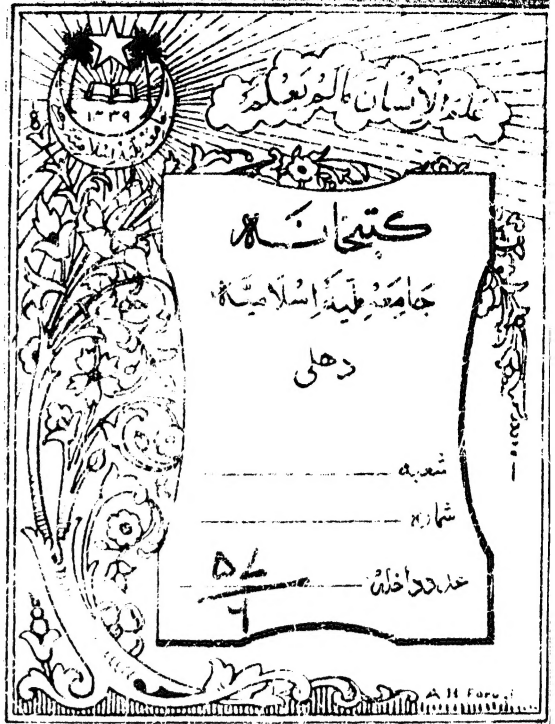 علم الإنسان مالم يعلم
۱۳۳۹
کتبخانہ
جامعہ ملیہ اسلامیہ
دهلی
شعبہ
شمارہ
عدد داخلہ
۵۷
۶
A H Faruqi